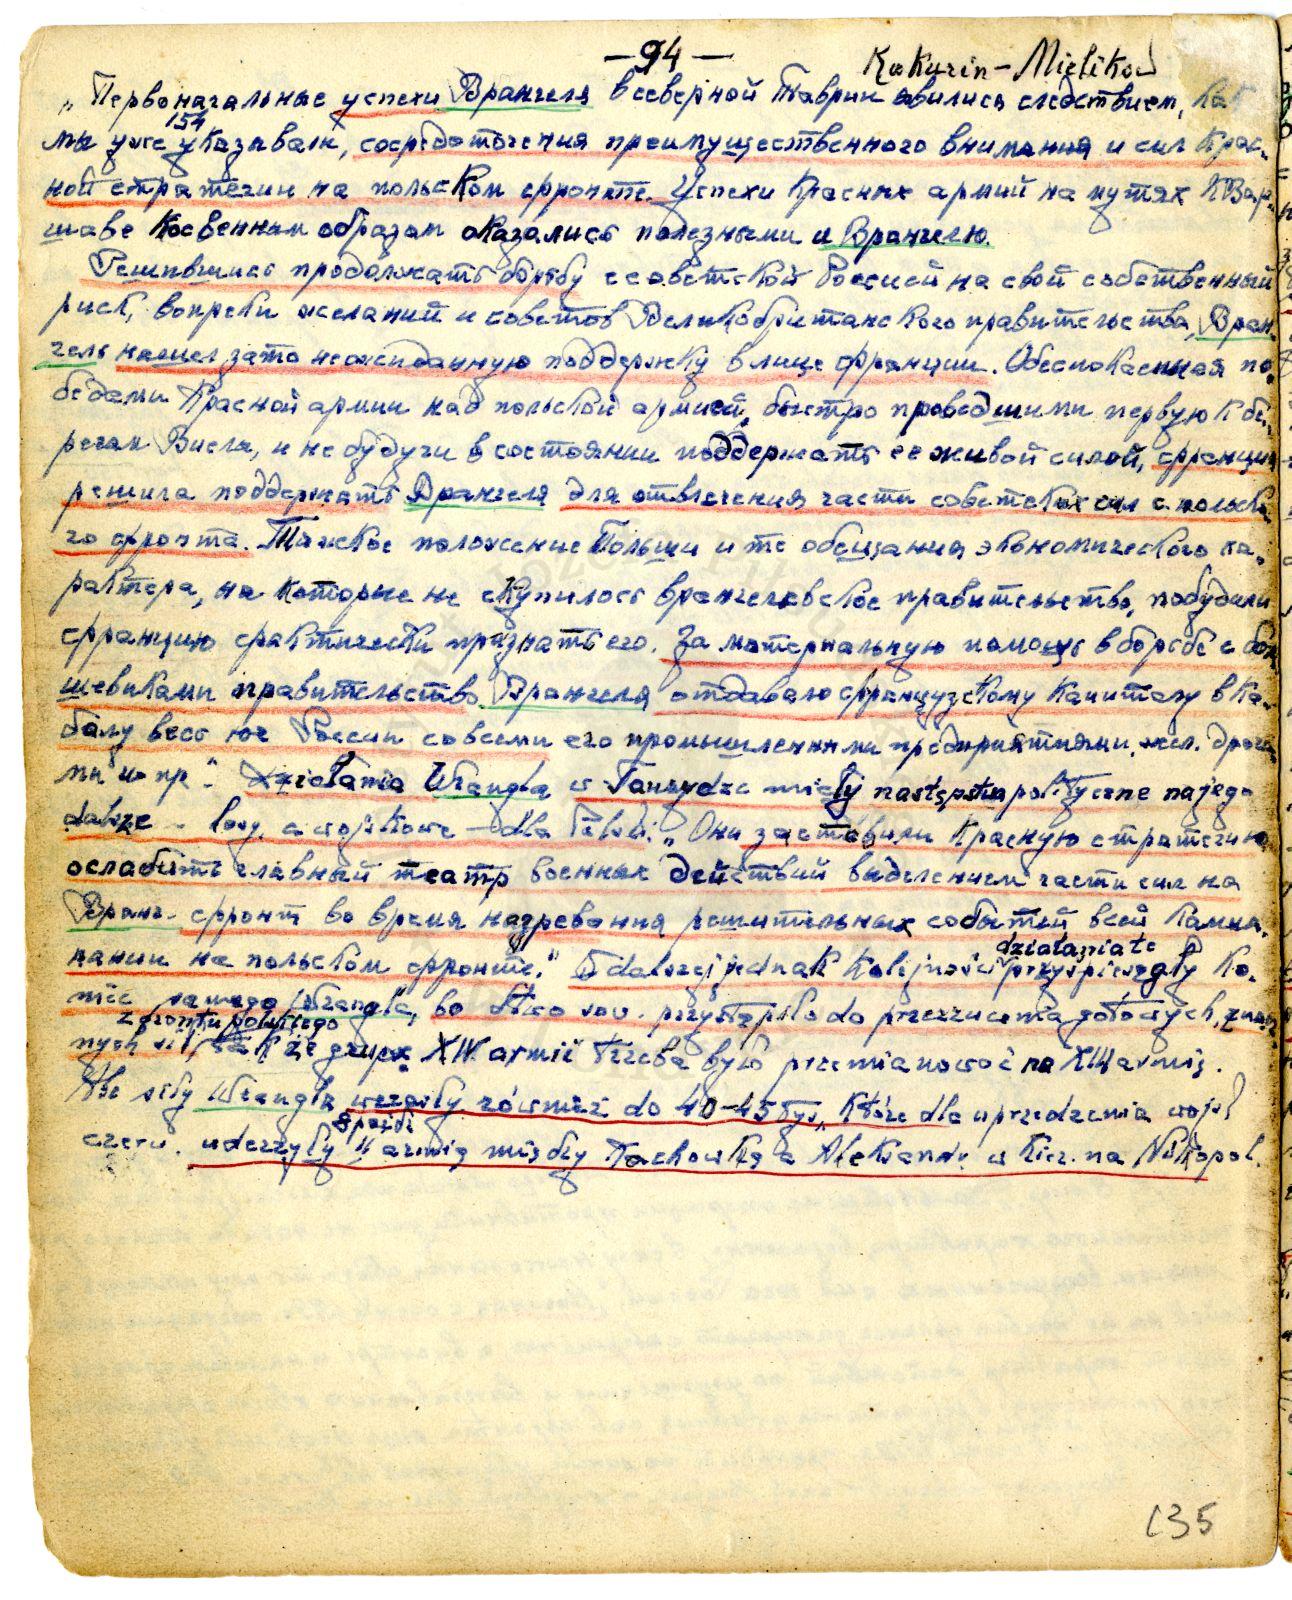 — 94 —
Kakurin – Mielikow
„Первоначальные успехи Врангеля в северной Таврии явились следствием, как
154
мы уже указывали, сосредоточения преимущественного внимания и сил крас-
ной стратегии на польском фронте. Успехи Красных армий на путях к Вар-
шаве косвенным образом оказались полезными и Врангелю.
Решившись продолжать борьбу с советской Россией на свой собственный
риск, вопреки желаний и советов Великобританского правительства, Вран-
гель нашел зато неожиданную поддержку в лице Франции. Обеспокоенная по-
бедами Красной армии над польской армией, быстро проведшими первую к бе-
регам Вислы, и не будучи в состоянии поддержать ее живой силой, Франция
решила поддержать Врангеля для отвлечения части советских сил с польско-
го фронта. Тяжкое положение Польши и те обещания экономического ха-
рактера, на которые не скупилось врангелевское правительство, побудили
Францию фрактически признать его. За материальную помощь в борьбе с бол-
шевиками правительство Врангеля отдавало французскому капиталу в ка-
балу весь юг России со всеми его промышленными предприятиями, жел. дорога-
ми и пр." Działania Wrangla w Taurydzie miały następstwa polityczne na jego
dalsze losy, a wojskowe — dla Polski: „Они заставили Красную стратегию
ослабить главный театр военных действий выделением части сил на
Вранг. фронт во время назревания решительных событий всей кампа-
нии на польском фронте." W dalszej jednak kolejności
działania te
przyśpieszyły ko-
niec samego Wrangla, bo dtwo sow. przystąpiło do przerzucenia gotowych, znacz-
z frontu polskiego
nych sił, tak że grupę XIV armii trzeba było przemianować na XIII armię.
Ale siły Wrangla wzrosły również do 40–45 tys., które dla uprzedzenia wojsk
8 paźdz.
czerw. uderzyły II armią między Kachowką a Aleksandr. w kier. na Nikopol.
135